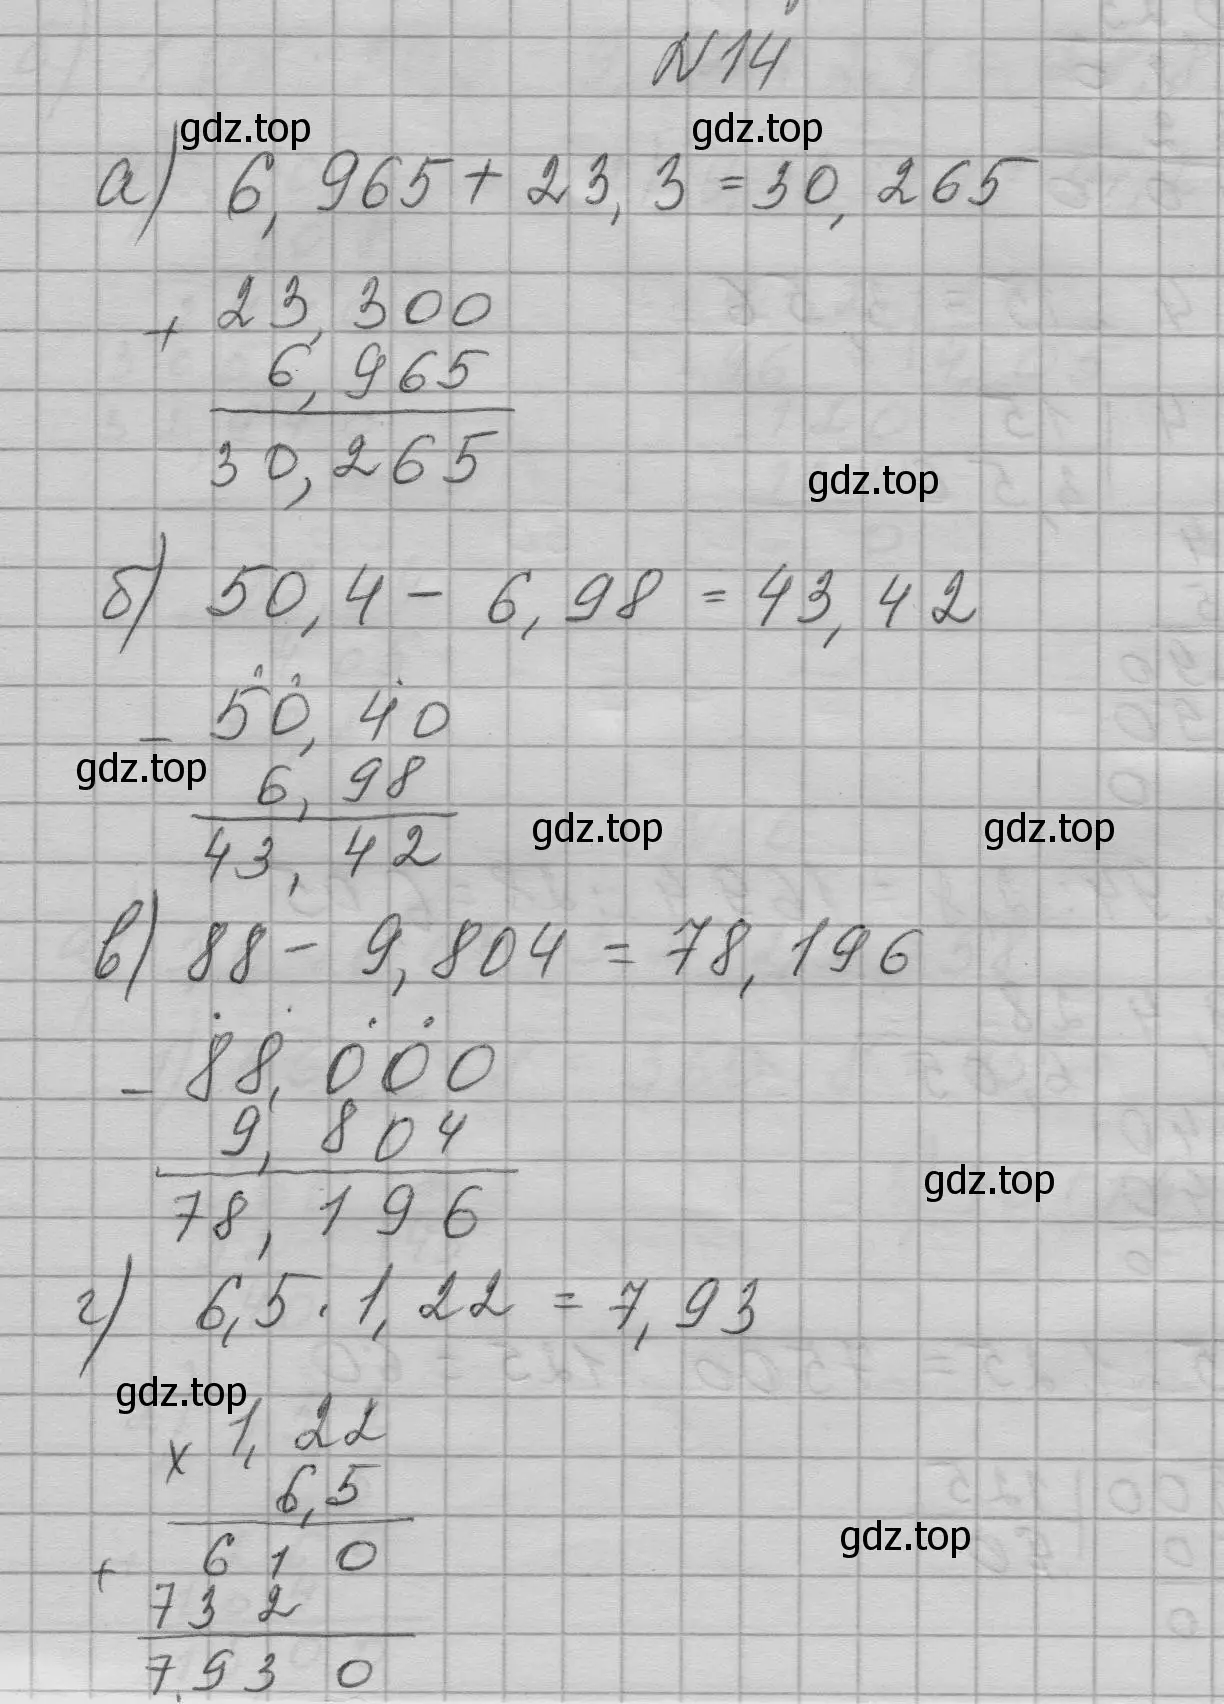 N 14
gdz.top gdz.top
а) 6,965 + 23,3 = 30,265
+ 23,300
6,965
30,265
gdz.top
б) 50,4 - 6,98 = 43,42
- 50,40
gdz.top
6,98
43,42
gdz.top gdz.top
в) 88 - 9,804 = 78,196
- 88,000
9,804
78,196
gdz.top
г) 6,5 · 1,22 = 7,93
gdz.top
x 1,22
6,5
gdz.top
+ 610
732
7,930